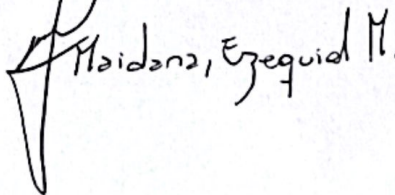 Maidana, Ezequiel M.